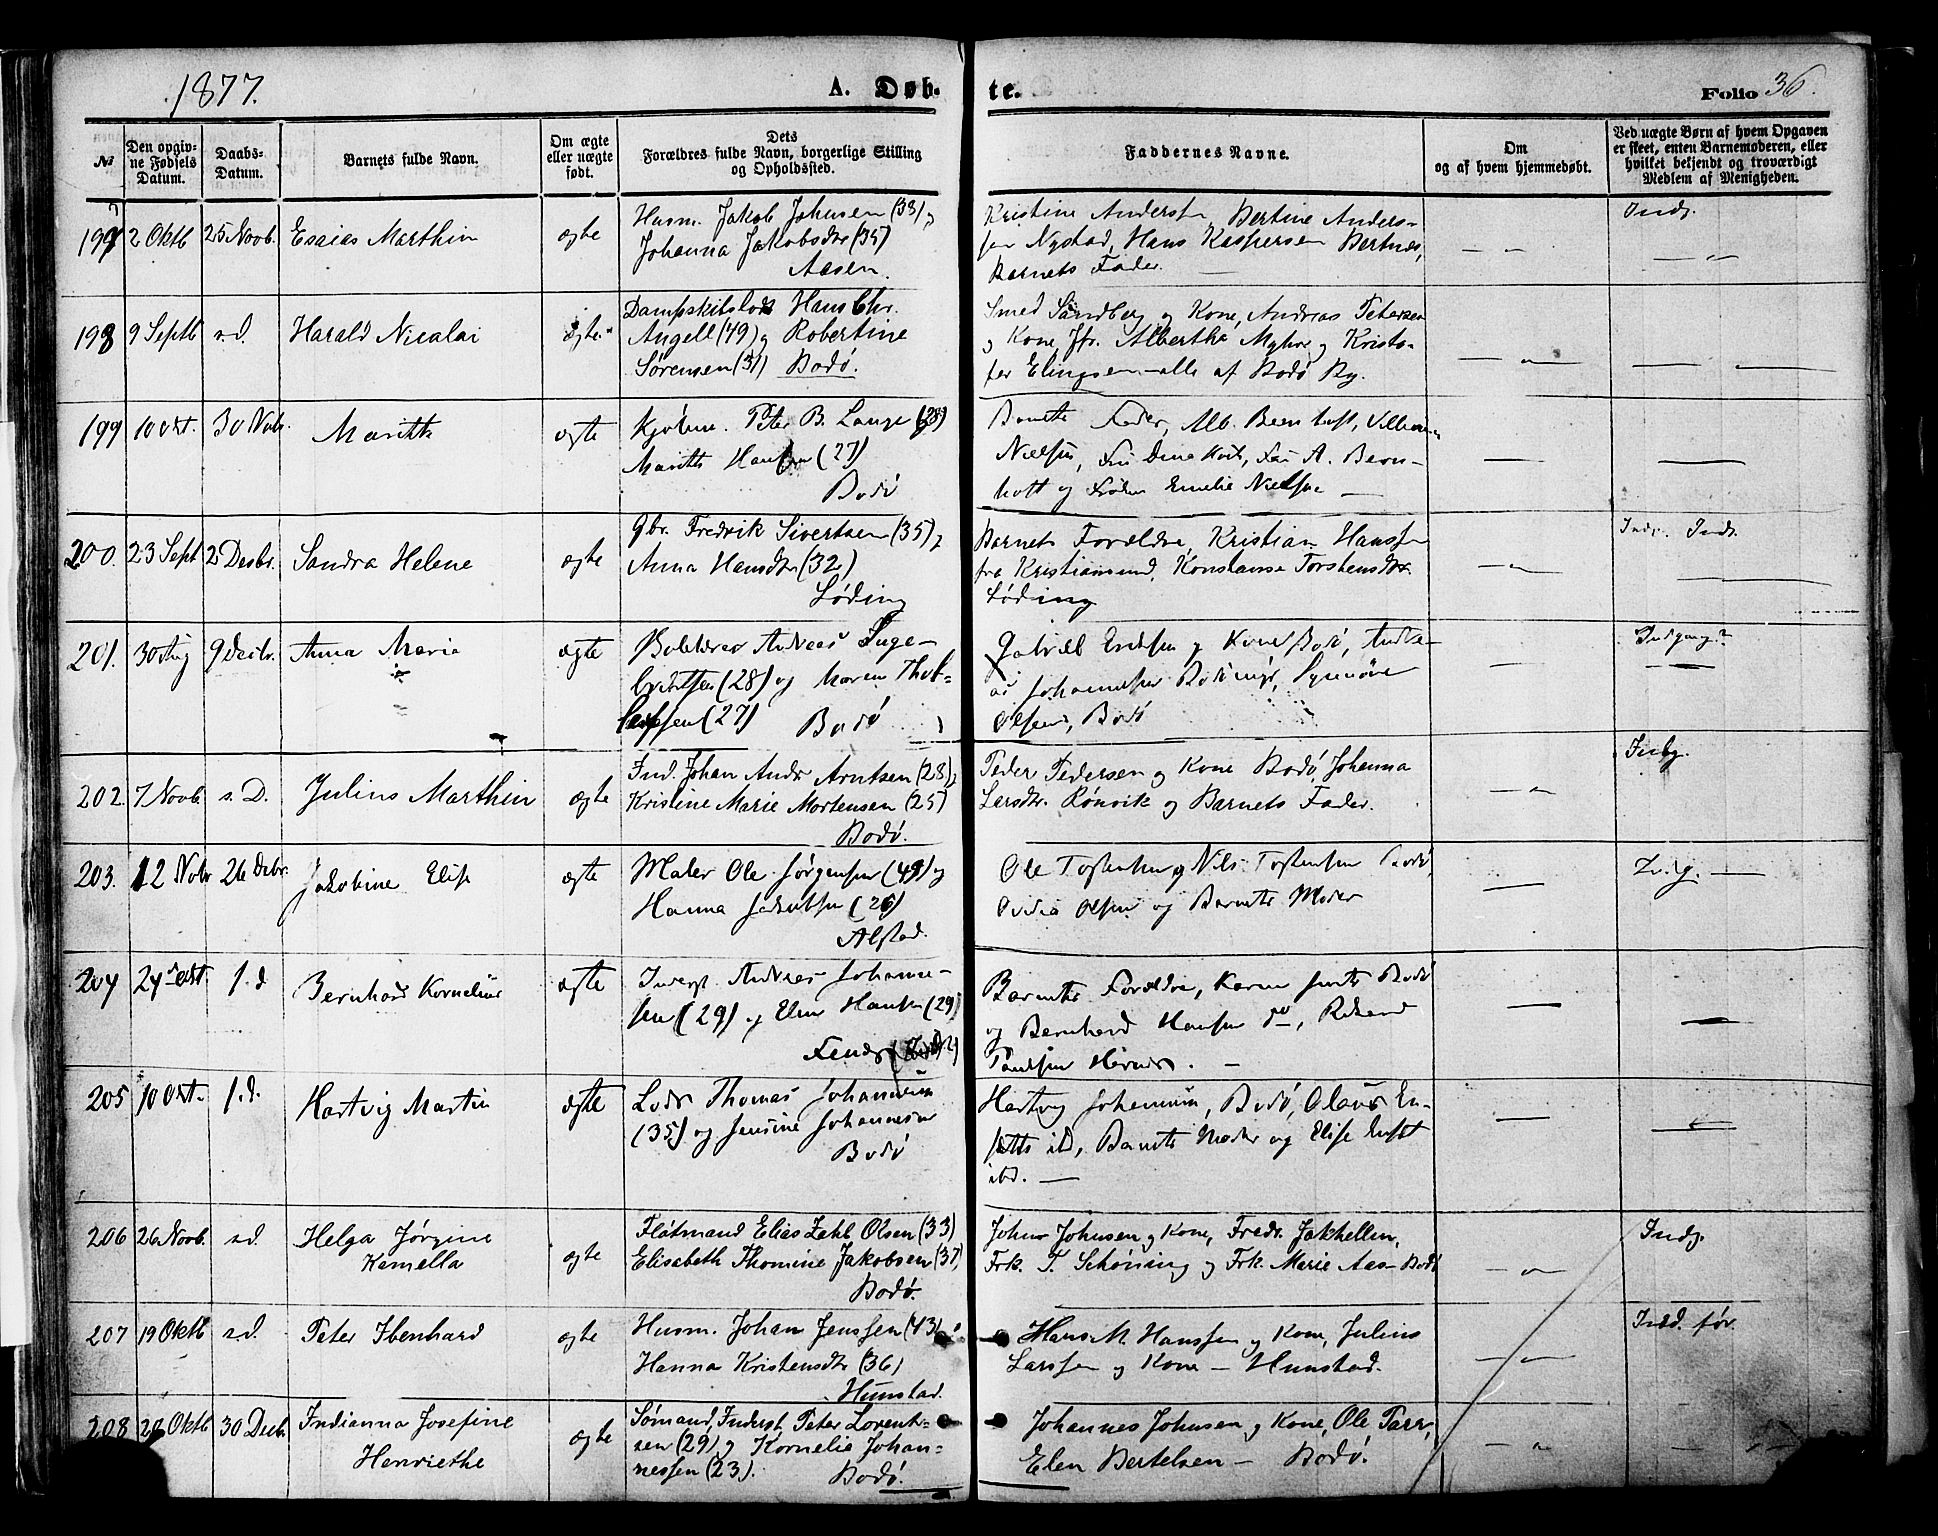 1877.
A. Døb-
te.
Folio 36.
No
Den opgiv-
ne Fødsels
Datum.
Daabs-
Datum.
Barnets fulde Navn.
Om ægte
eller uægte
født.
Dets
Forældres fulde Navn, borgerlige Stilling
og Opholdssted.
Faddernes Navne.
Om
og af hvem hjemmedøbt.
Ved uægte Børn af hvem Opgaven
er skeet, enten Barnemoderen, eller
hvilket bekjendt og troværdigt
Medlem af Menigheden.
197 2 Oktb 25 Novb. Esaias Marthin ægte
Husm. Jakob Johnsen (33) &
Johanna Jakobsdtr (35)
Aasen.
Kristine Anderssen, Bertine Anders-
sen Nystad, Hans Kaspersen Bertnes,
Barnets Fader.
Indg.
198 9 Septb s.d. Harald Nicolai ægte
Dampskibslods Hans Chr.
Angell (49) og Robertine
Sørensen (31) Bodø.
Smed Sandberg og Kone, Andreas Petersen
og Kone, Jfr. Alberthe Myhre og Kristo-
fer Elingsen - alle af Bodø By.
199 10 Okt. 30 Novbr. Marith ægte
Kjøbm. Peter B. Lange (28)
Marith Hansen (27)
Bodø
Barnets Fader, Alb. Beenhoft,
Nielsen, Fru Dina Koch, Fru A. Been-
hoft og Frøken Emelie Nielsen
200. 23 Sept 2 Desbr. Sandra Helene ægte
Gbr. Fredrik Sivertsen (35) &
Anna Hansdtr (32)
Løding
Barnets Forældre, Kristian Hanssen
fra Kristiansund, Konstanse Torstensdtr.
Løding
Indg. Indr.
201. 30 Aug 9 Desbr. Anna Marie ægte
Andreas Inge-
britsen (28) og Maren Thob-
(27) Bodø
Gabriel Eriksen og Kone Bodø, Andre-
as Johannesen Synnøve
Olsen, Bodø
Indgang?
202. 7 Novb. s.D. Julius Marthin ægte
Ind. Johan Andr Arntsen (28) &
Kristine Marie Mortensen (25)
Bodø.
Peder Pedersen og Kone Bodø, Johanna
Larsdtr. Rønvik og Barnets Fader.
Indg.
203. 12 Novbr 26 Desbr. Jakobine Elise ægte
Maler Ole Jørgensen (49) og
Hanna Jakobsen (26)
Alstad.
Ole Tostensen og Nils Tostensen Bodø,
Ovidia Olsen og Barnets Moder
204 24 Okt. s.d Bernhard Kornelius ægte
Inderst Andreas Johanne-
sen (29) og Elen Hansen (29)
Barnets Forældre, Karen Jents Bodø
og Bernhard Hansen do, Rikard
Paulsen Hernes.
205 10 Okt. s.d. Hartvig Martin ægte
Lods Thomas Johannesen
(35) og Jensine Johannesen
Bodø
Hartvig Johannesen, Bodø, Olaus En-
ibd, Barnets Moder og Elise
ibd.
206 26 Novb. s.d. Helga Jørgine
Kamella
ægte
Fløtmand Elias Zahl Olsen (33)
Elisabeth Thomine Jakobsen (37)
Bodø.
Johan Johnsen og Kone, Fredr. Jakhelln,
Frk. T. Schøning og Frk. Marie Aas - Bodø
Indg.
207 19 Oktb s.d. Peter Ibenhard ægte
Husm. Johan Jenssen (43) &
Hanna Kristensdtr (36)
Hunstad.
Hans M. Hanssen og Kone, Julius
Larssen og Kone - Hunstad.
Ind. før.
208 28 Oktb 30 Decb. Indianna Josefine
Henriethe
ægte
Sømand, Inderst, Peter Lorent-
sen (29) og Kornelie Johan-
nessen (23).
Bodø.
Johannes Johnsen og Kone, Ole Parr,
Elen Bertelsen - Bodø.